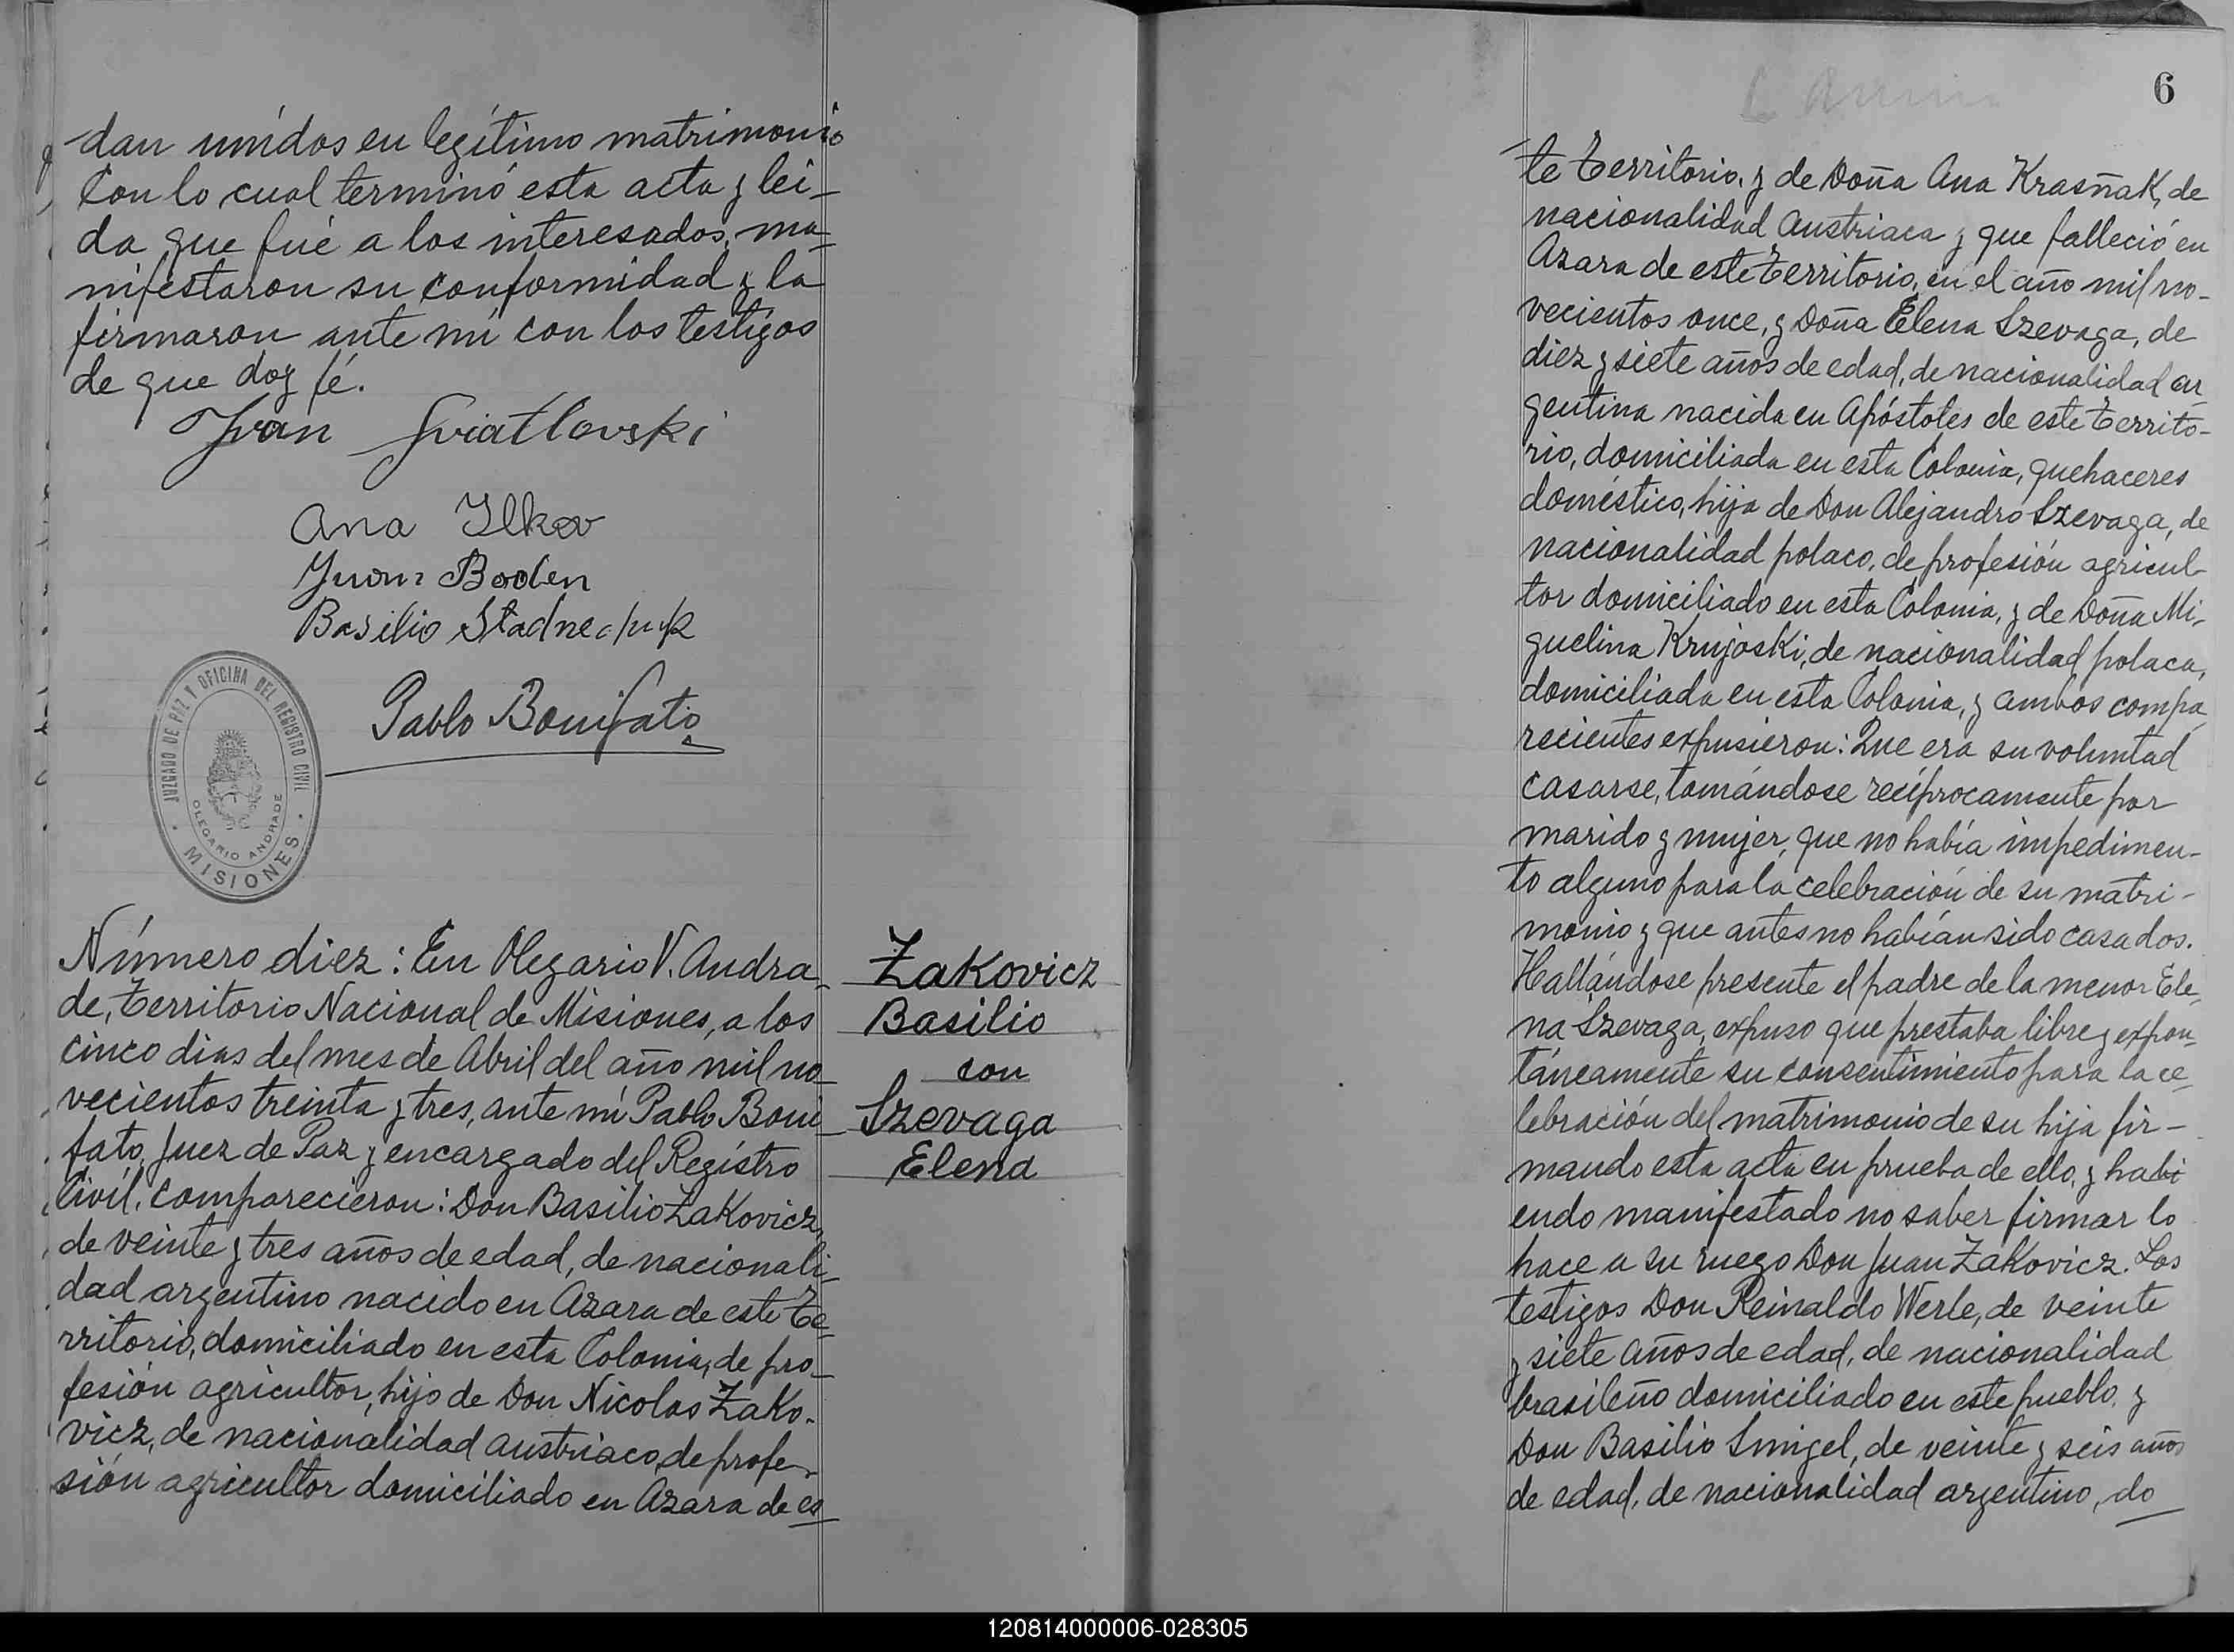 dan unidos en legítimo matrimonio
Con lo cual terminó esta acta y lei-
da que fué a los interesados, ma-
nifestaron su conformidad y la
firmaron ante mí con los testigos
de que doy fé.
Ivan Sviatlovski
Ana Ilkov
Juan Boden
Basilio
Pablo Bonifato
JUZGADO DE PAZ Y OFICINA DEL REGISTRO CIVIL
OLEGARIO ANDRADE
MISIONES
Número diez: En Olegario V. Andra-
de, Territorio Nacional de Misiones, a los
cinco dias del mes de Abril del año mil no-
vecientos treinta y tres, ante mí Pablo Boni-
fato, Juez de Paz y encargado del Regístro
Civíl, comparecieron: Don Basilio Zakovicz,
de veinte y tres años de edad, de nacionali-
dad argentino nacido en Azara de este Te-
rritorio, domiciliado en esta Colonia, de pro-
fesión agricultor, hijo de Don Nicolas Zako-
vicz, de nacionalidad austriaco, de profe-
sión agricultor domiciliado en Azara de es
Zakovicz
Basilio
con
Szevaga
Elena
6
te Territorio, y de Doña Ana Krasñak, de
nacionalidad Austriaca y que falleció en
Azara de este Territorio, en el año mil no-
vecientos once, y Doña Elena Szevaga, de
diez y siete años de edad, de nacionalidad ar
gentina nacida en Apóstoles de este Territo-
rio, domiciliada en esta Colonia, quehaceres
doméstico, hija de Don Alejandro Szevaga, de
nacionalidad polaco, de profesión agricul-
tor domiciliado en esta Colonia, y de Doña Mi-
guelina Krujoski, de nacionalidad polaca,
domiciliada en esta Colonia, y ambos compa
recientes expusieron: Que era su voluntad
casarse, tomándose recíprocamente por
marido y mujer, que no había impedimen-
to alguno para la celebración de su matri-
monio y que antes no habían sido casados.
Hallándose presente el padre de la menor Ele-
na Szevaga, expuso que prestaba libre y expon-
táneamente su consentimiento para la ce-
lebración del matrimonio de su hija fir-
mando esta acta en prueba de ello, y habi
endo manifestado no saber firmar lo
hace a su ruego Don Juan Zakovicz. Los
testigos Don Reinaldo Werle, de veinte
y siete años de edad, de nacionalidad
brasileño domiciliado en este pueblo, y
Don Basilio Smigel, de veinte y seis años
de edad, de nacionalidad argentino, do
120814000006-028305